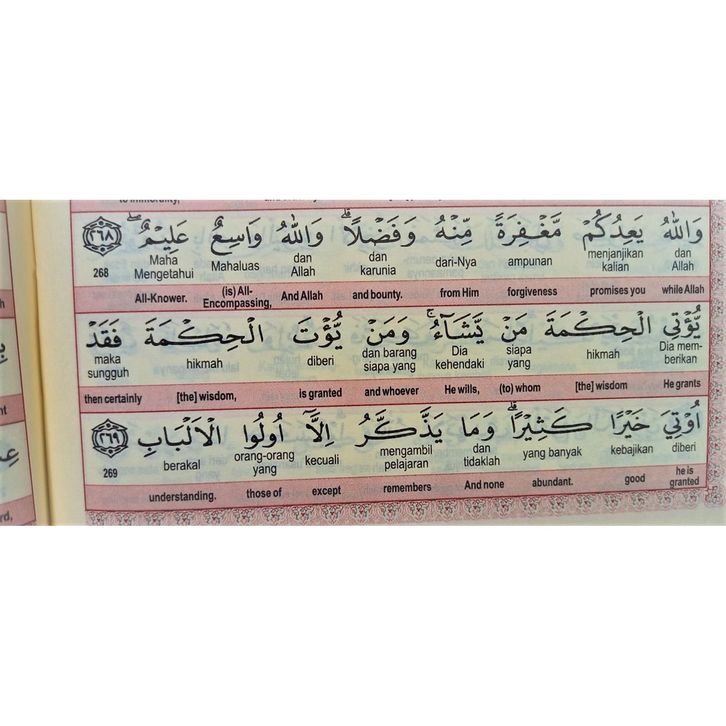 وَاللّٰهُ يَعِدُكُمْ مَّغْفِرَةً مِّنْهُ وَفَضْلًا ۗ وَاللّٰهُ وَاسِعٌ عَلِيْمٌ ۖ ٢٦٨
dan Allah menjanjikan kalian ampunan dari-Nya dan karunia dan Allah Mahaluas Maha Mengetahui 268
while Allah promises you forgiveness from Him and bounty. And Allah (is) All-Encompassing, All-Knower.
يُّؤْتِى الْحِكْمَةَ مَنْ يَّشَاۤءُ ۚ وَمَنْ يُّؤْتَ الْحِكْمَةَ فَقَدْ
Dia mem-berikan hikmah siapa yang Dia kehendaki dan barang siapa yang diberi hikmah maka sungguh
He grants [the] wisdom (to) whom He wills, and whoever is granted [the] wisdom, then certainly
اُوْتِيَ خَيْرًا كَثِيْرًا ۗ وَمَا يَذَّكَّرُ اِلَّآ اُولُوا الْاَلْبَابِ ٢٦٩
diberi kebajikan yang banyak dan tidaklah mengambil pelajaran kecuali orang-orang yang berakal 269
he is granted good abundant. And none remembers except those of understanding.